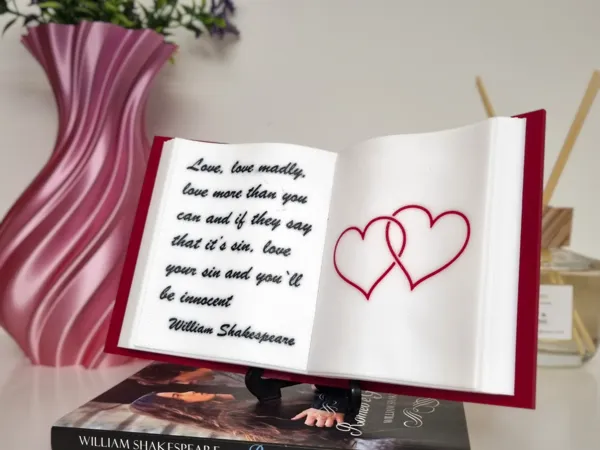 Love, love madly,
love more than you
can and if they say
that it's sin, love
your sin and you`ll
be innocent
William Shakespeare
Romeo e
WILLIAM SHAKESPEARE